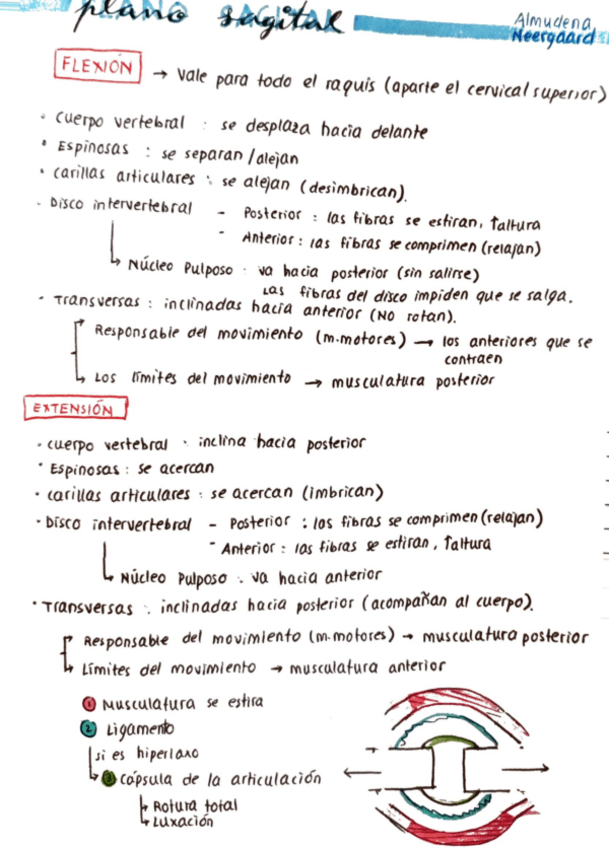 plano sagital
Almudena
Neergaard
FLEXIÓN → Vale para todo el raquis (aparte el cervical superior)
· Cuerpo vertebral : se desplaza hacia delante
· Espinosas : se separan/alejan
· Carillas articulares : se alejan (desimbrican).
- Disco intervertebral - Posterior : las fibras se estiran, ↑altura
- Anterior : las fibras se comprimen (relajan)
↳ Núcleo Pulposo : va hacia posterior (sin salirse)
Las fibras del disco impiden que se salga.
· Transversas : inclinadas hacia anterior (NO rotan).
Responsable del movimiento (m.motores) → los anteriores que se
contraen
↳ Los límites del movimiento → musculatura posterior
EXTENSIÓN
· cuerpo vertebral : inclina hacia posterior
· Espinosas : se acercan
· carillas articulares : se acercan (imbrican)
· Disco intervertebral - Posterior : las fibras se comprimen (relajan)
- Anterior : las fibras se estiran, ↑altura
↳ Núcleo Pulposo : va hacia anterior
· Transversas : inclinadas hacia posterior (acompañan al cuerpo).
Responsable del movimiento (m.motores) → musculatura posterior
↳ Límites del movimiento → musculatura anterior
① Musculatura se estira
② Ligamento
si es hiperlaxo
↳ ③ Cápsula de la articulación
↳ Rotura total
↳ Luxación